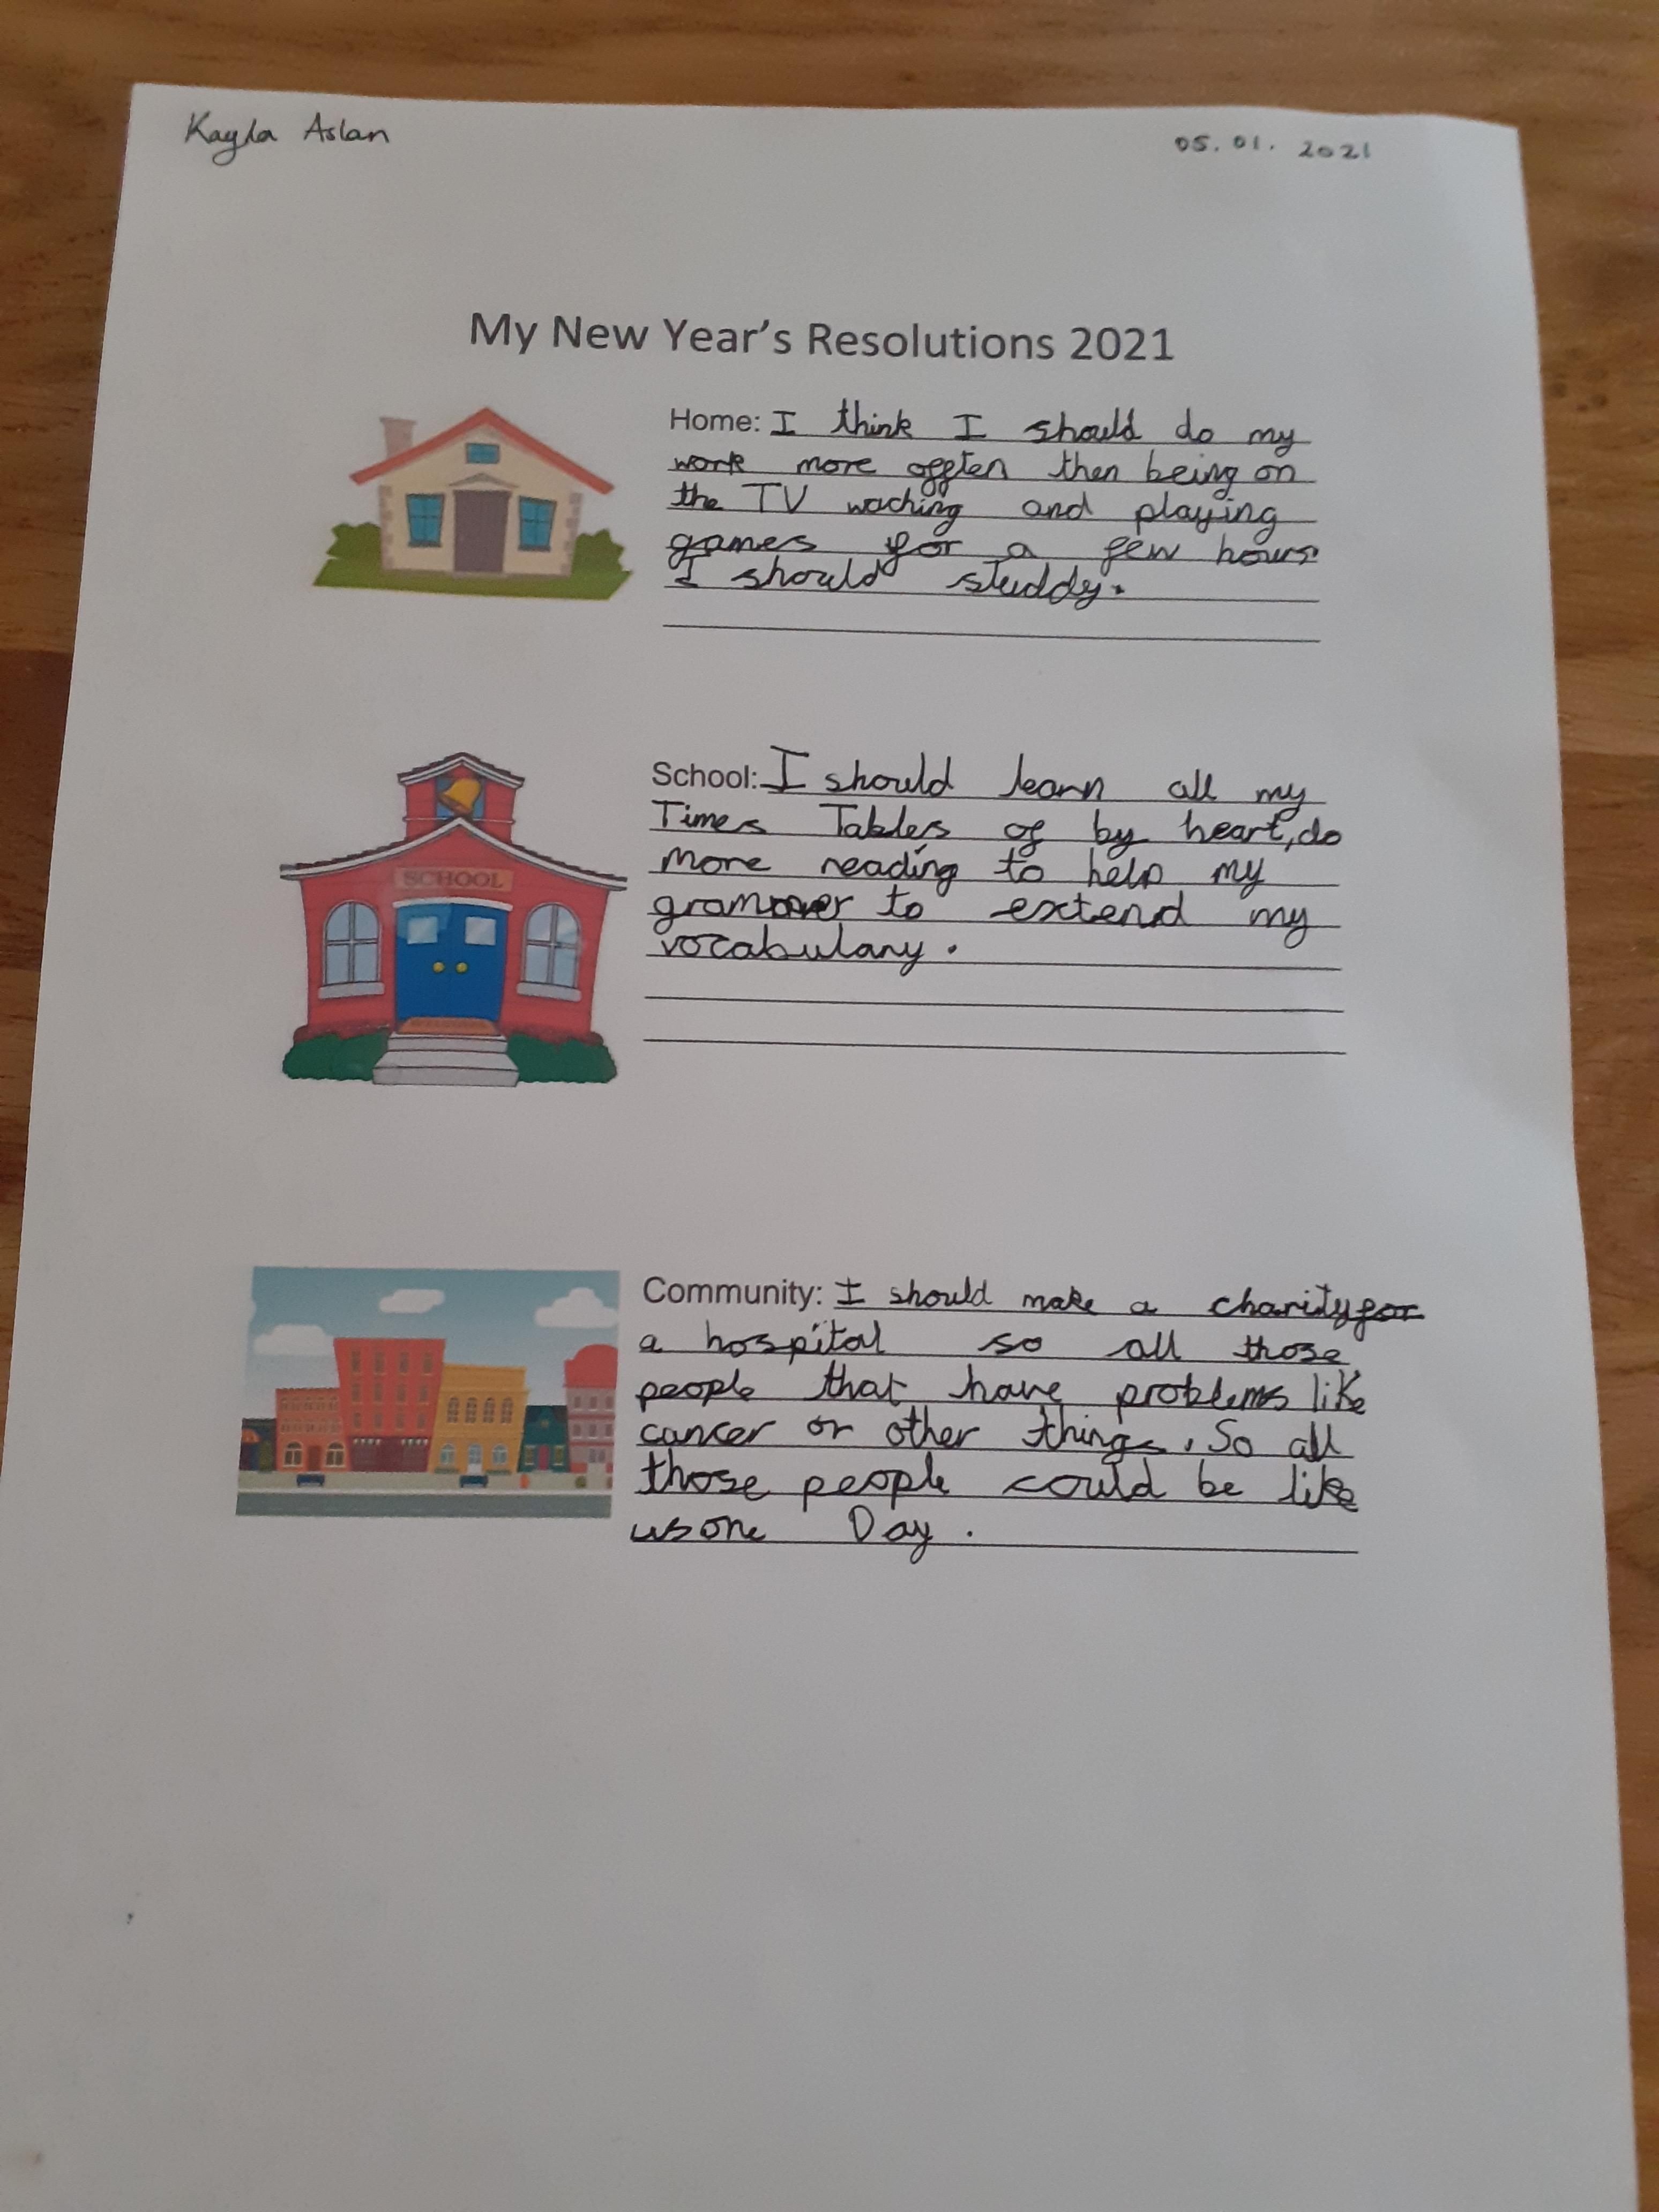 Kayla Aslan
05.01.2021
My New Year's Resolutions 2021
Home: I think I should do my
work more offten then being on
the TV waching and playing
games for a few hours
I should studdy.
SCHOOL
School: I should learn all my
Times Tables of by heart, do
more reading to help my
to extend my
vocabulary.
Community: I should make a charity for
a hospital so all those
people that have problems like
cancer or other things. So all
those people could be like
us one Day.